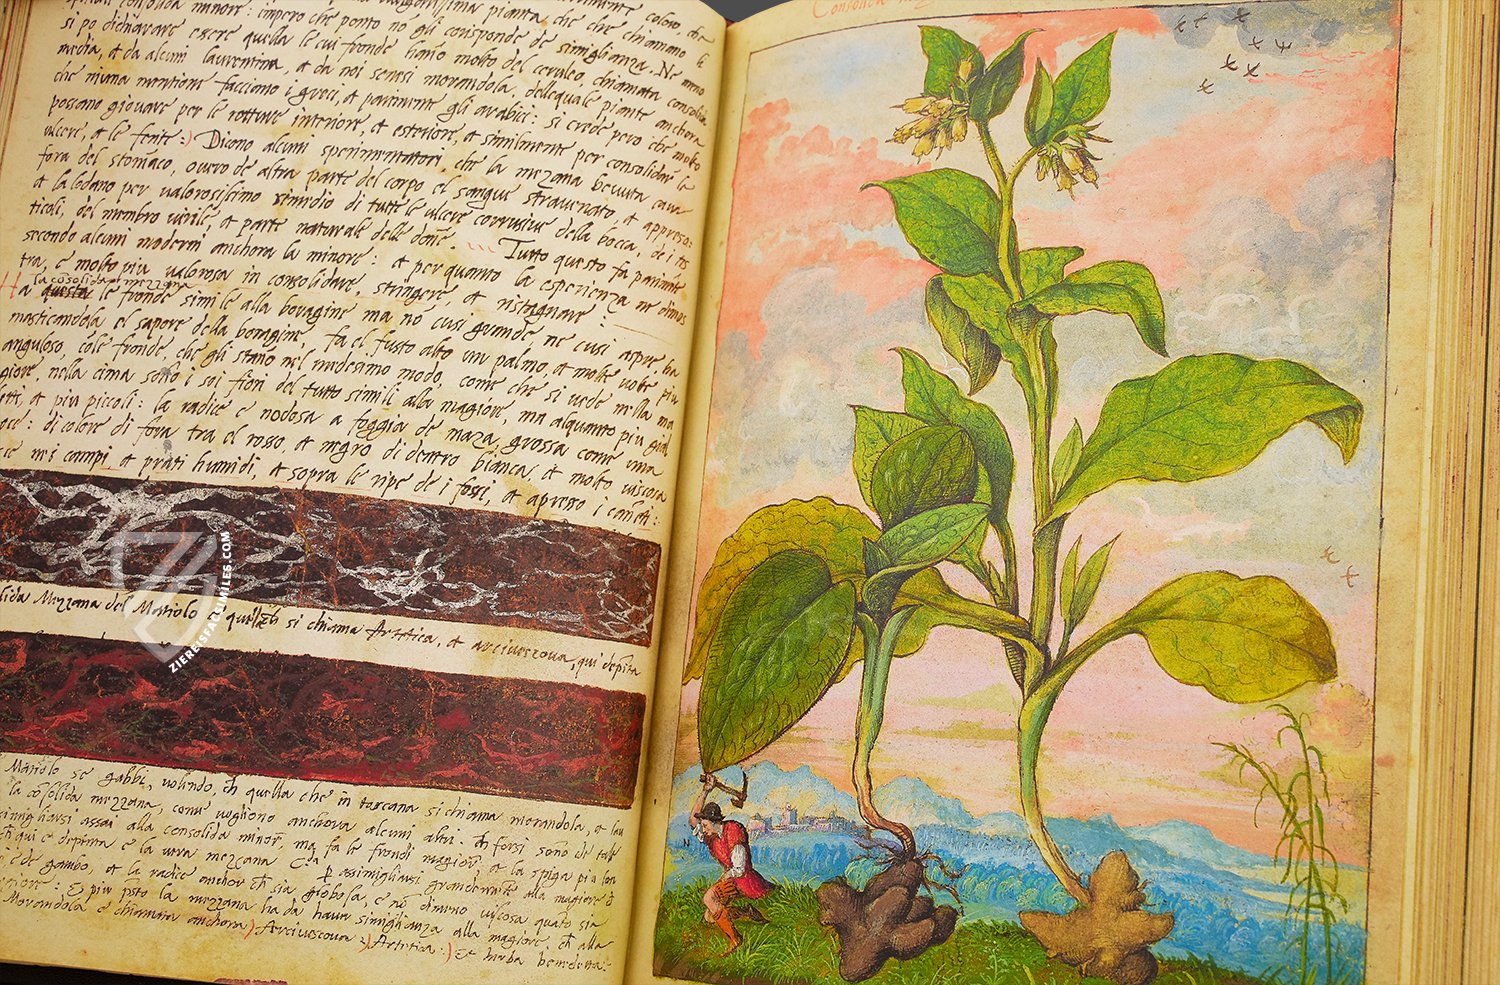 si po dichiarare essere quella le cui fronde hano molto del ceruleo, chiamata consolida
media, et da alcuni laurentina, et da noi senesi morandola, dellequale piante anchora
che niuna mentione facciano i greci, et parimente gli arabici: si crede pero che molto
possano giovare per le rotture interiore, et esteriore, et similmente per consolidare le
ulcere, et le ferite:) Dicono alcuni sperimentatori, che la mezana bevuta cava
fora del stomaco, overo de altra parte del corpo el sangue stravenato, et appreso:
et la lodano per valorosissimo rimedio di tutte le ulcere corrosive della bocca, de i tes
ticoli, del membro virile, et parte naturale delle done. Tutto questo fa parimente
secondo alcuni moderni anchora la minore: et per quanto la esperienza ne dimos
tra, e molto piu valorosa in consolidare, stringere, et ristagnare:
la cōsolida mezzana
a questa le fronde simile alla boragine ma nō cusi grande ne cusi aspre, ha
masticandola el sapore della boragine, fa el fusto alto un palmo, et molte volte piu
anguloso, cole fronde, che gli stano nel medesimo modo, come che si vede nella ma
giore, nella cima sono i soi fiori del tutto simili alla magiore, ma alquanto piu gial
letti, et piu piccoli: la radice e nodosa a foggia de maza, grossa come una
noce: di colore di fora tra el rosso, et negro di dentro bianca, et molto viscosa
ce nei campi et prati humidi, et sopra le ripe de i fossi, et apresso i canēti:
ZIEREISFACSIMILES.COM
lida Mezzana del Matiolo è quella, ch si chiama Artetica, et arciuescova, qui depīta
Matiolo se gabbi, volindo, ch quella che in toscana si chiama morandola, et lau
la cōsolida mezzana, come vogliono anchora alcuni altri: ch forsi sono de tale
simigliarsi assai alla consolida minor, ma fa le frondi magiori, et la spiga piu lon
ch qui e depinta e la vera mezzana
e de gambo, et la radice anchor ch sia globosa, e nō dimeno viscosa quāto sia
piu psto la mezzana ha da haver simiglianza alla magiore, ch alla
Morandola e chiamata anchora) Arciuescova :) Artetica :) et herba benedetta:
Consolida